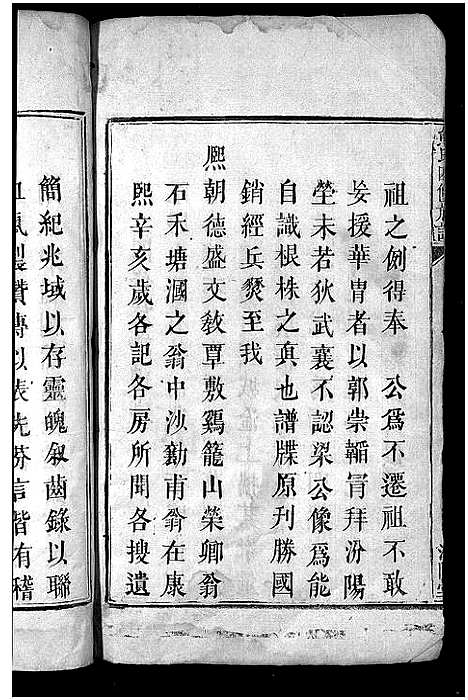 祖之例得奉　公爲不遷祖不敢
妄援華胄者以郭崇韜冐拜汾陽
塋未若狄武襄不認梁公像爲能
自識根株之真也譜牒原刋勝國
銷經兵燹至我
熈朝德盛文敎覃敷鷄籠山榮卿翁
石禾塘漍之翁中沙勷甫翁在康
熙辛亥歲各記各房所聞各搜遺
簡紀兆域以存靈魄叙齒錄以聯
製贊傳以表先芬言皆有稽